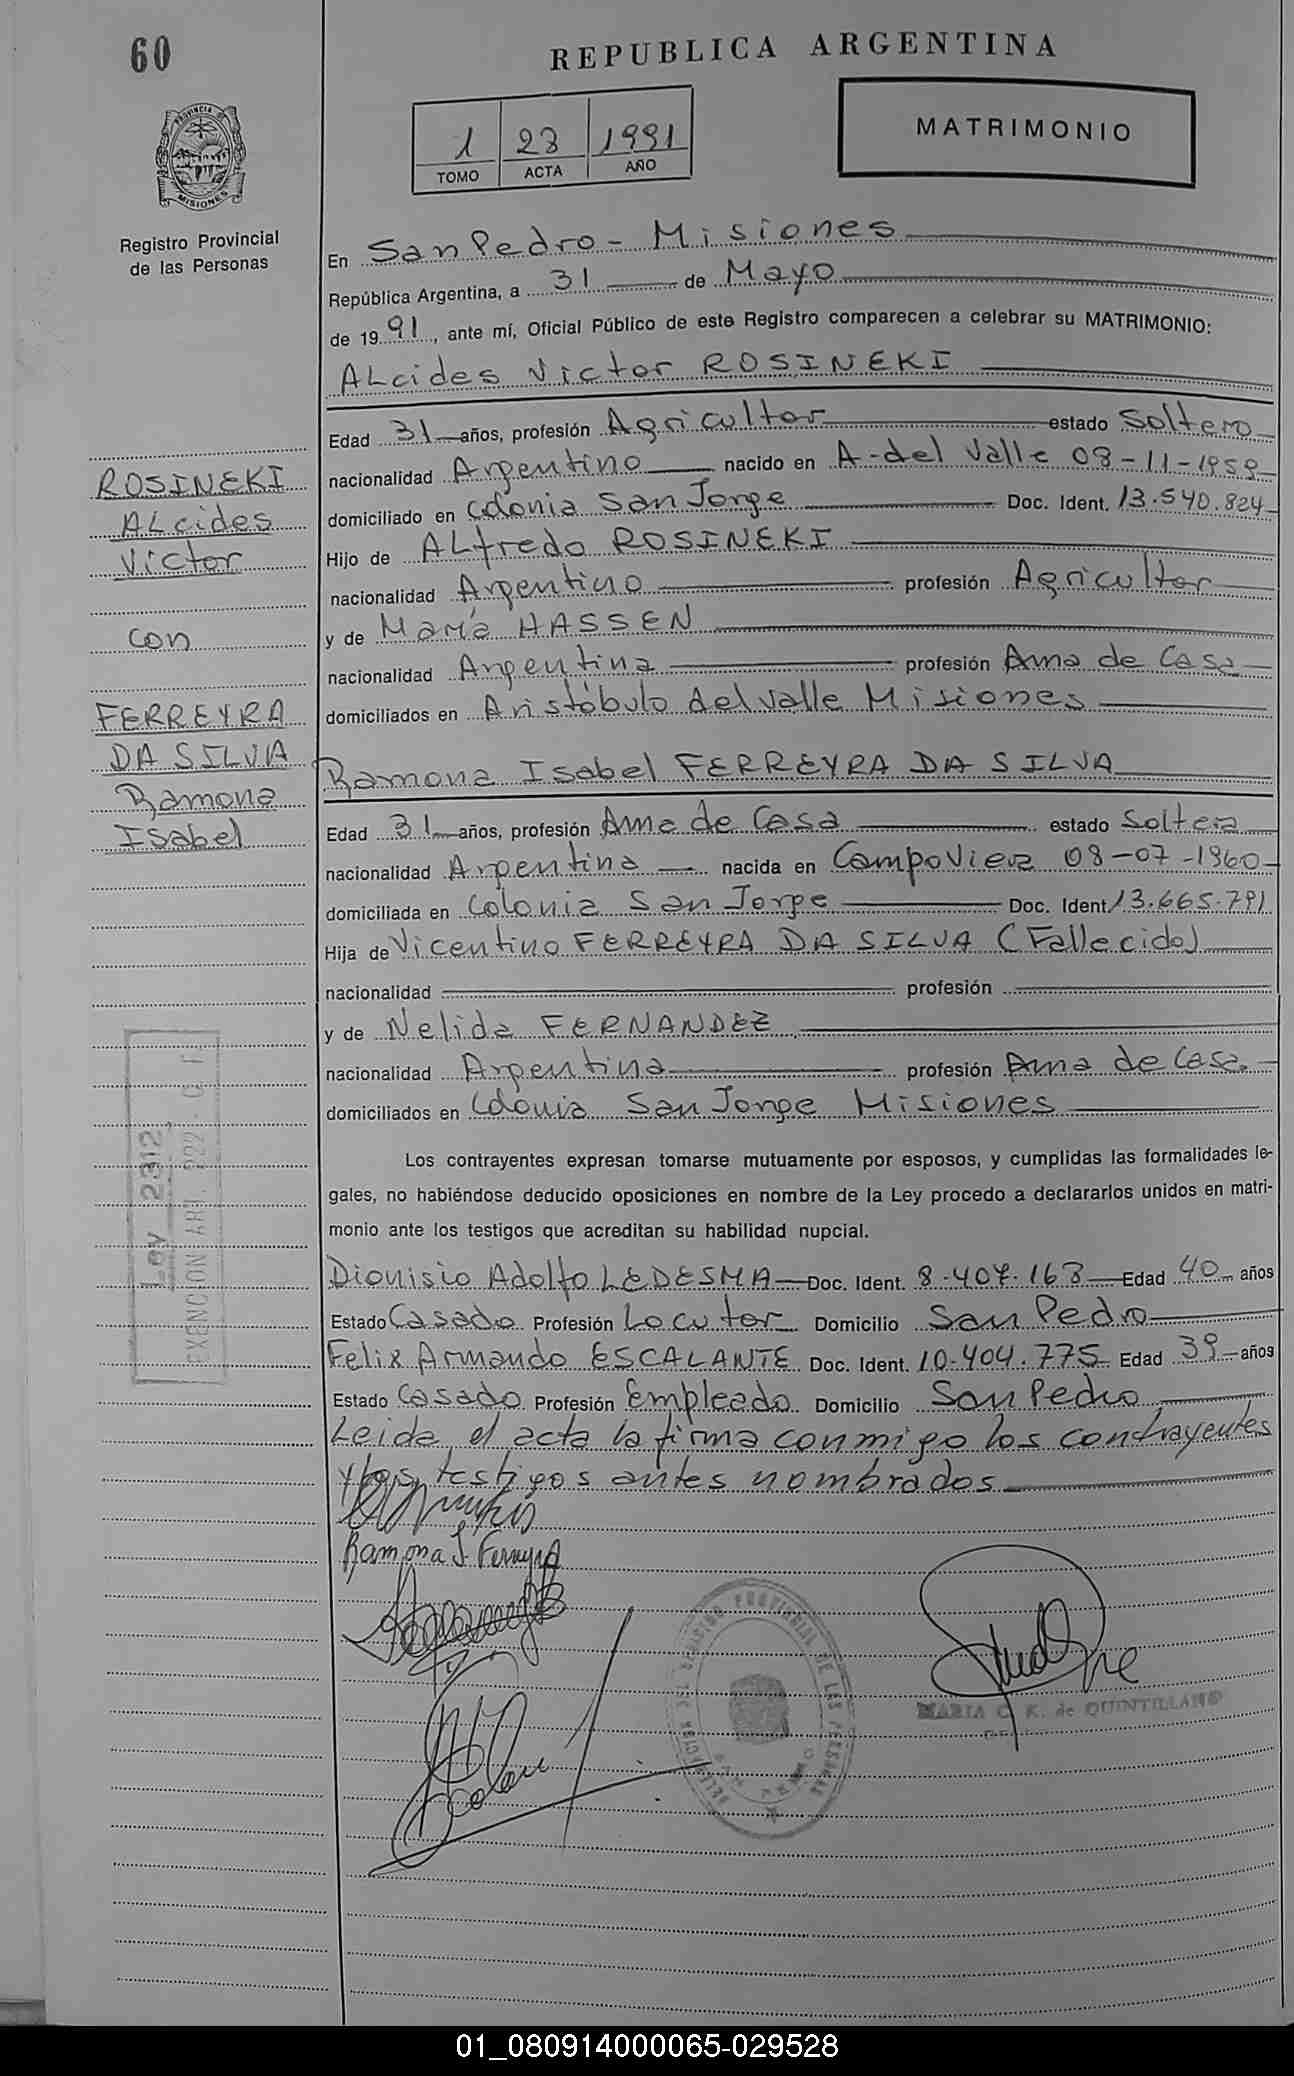 60
REPUBLICA ARGENTINA
PROVINCIA DE
MISIONES
Registro Provincial
de las Personas
1 23 1991
TOMO ACTA AÑO
MATRIMONIO
En San Pedro - Misiones
República Argentina, a 31 de Mayo
de 1991, ante mí, Oficial Público de este Registro comparecen a celebrar su MATRIMONIO:
ALcides Victor ROSINEKI
Edad 31 años, profesión Agricultor estado Soltero
nacionalidad Argentino nacido en A-del Valle 08-11-1959
domiciliado en Colonia San Jorge Doc. Ident. 13.540.824
Hijo de ALfredo ROSINEKI
nacionalidad Argentino profesión Agricultor
y de María HASSEN
nacionalidad Argentina profesión Ama de Casa
domiciliados en Aristóbulo del Valle Misiones
ROSINEKI
ALcides
Victor
con
FERREYRA
DA SILVA
Ramona
Isabel
Ramona Isabel FERREYRA DA SILVA
Edad 31 años, profesión Ama de Casa estado Soltera
nacionalidad Argentina nacida en Campo Viera 08-07-1960
domiciliada en Colonia San Jorge Doc. Ident 13.665.791
Hija de Vicentino FERREYRA DA SILVA (Fallecido)
nacionalidad profesión
y de Nelida FERNANDEZ
nacionalidad Argentina profesión Ama de Casa
domiciliados en Colonia San Jorge Misiones
Ley 2312
EXENCION AR. 222 C. F.
Los contrayentes expresan tomarse mutuamente por esposos, y cumplidas las formalidades le-
gales, no habiéndose deducido oposiciones en nombre de la Ley procedo a declararlos unidos en matri-
monio ante los testigos que acreditan su habilidad nupcial.
Dionisio Adolfo LEDESMA Doc. Ident. 8.407.163 Edad 40 años
Estado Casado Profesión Locutor Domicilio San Pedro
Felix Armando ESCALANTE Doc. Ident. 10.404.775 Edad 39 años
Estado Casado Profesión Empleado Domicilio San Pedro
Leida el acta la firma conmigo los contrayentes
y los testigos antes nombrados
Ramona I. Ferreyra
REGISTRO PROVINCIAL DE LAS PERSONAS
MARIA C. K. de QUINTILLANO
01_080914000065-029528